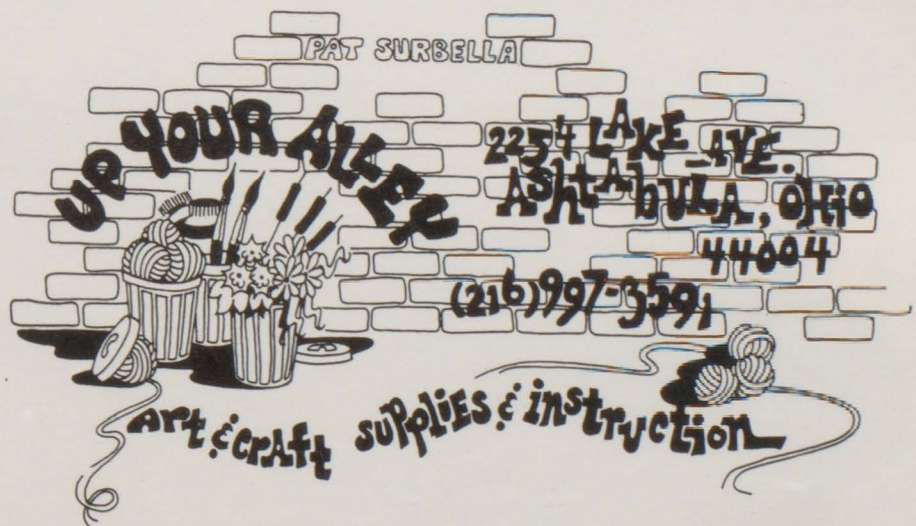 PAT SURBELLA
UP YOUR ALLEY
2254 LAKE AVE.
AShtAbULA, OHiO
44004
(216)997-3591
Art & crAft supplies & instruction